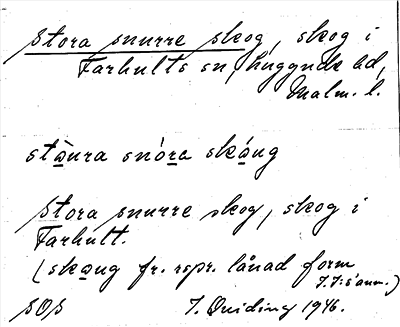 Stora snurre skog, skog i
Farhults sn, Luggude hd,
Malm. l.
stå̱ura snóra ská̱ug
Stora snurre skog, skog i
Farhult.
(ska̱ug fr. rspr. lånad form
I. I:s anm.)
SOS I. Quiding 1946.